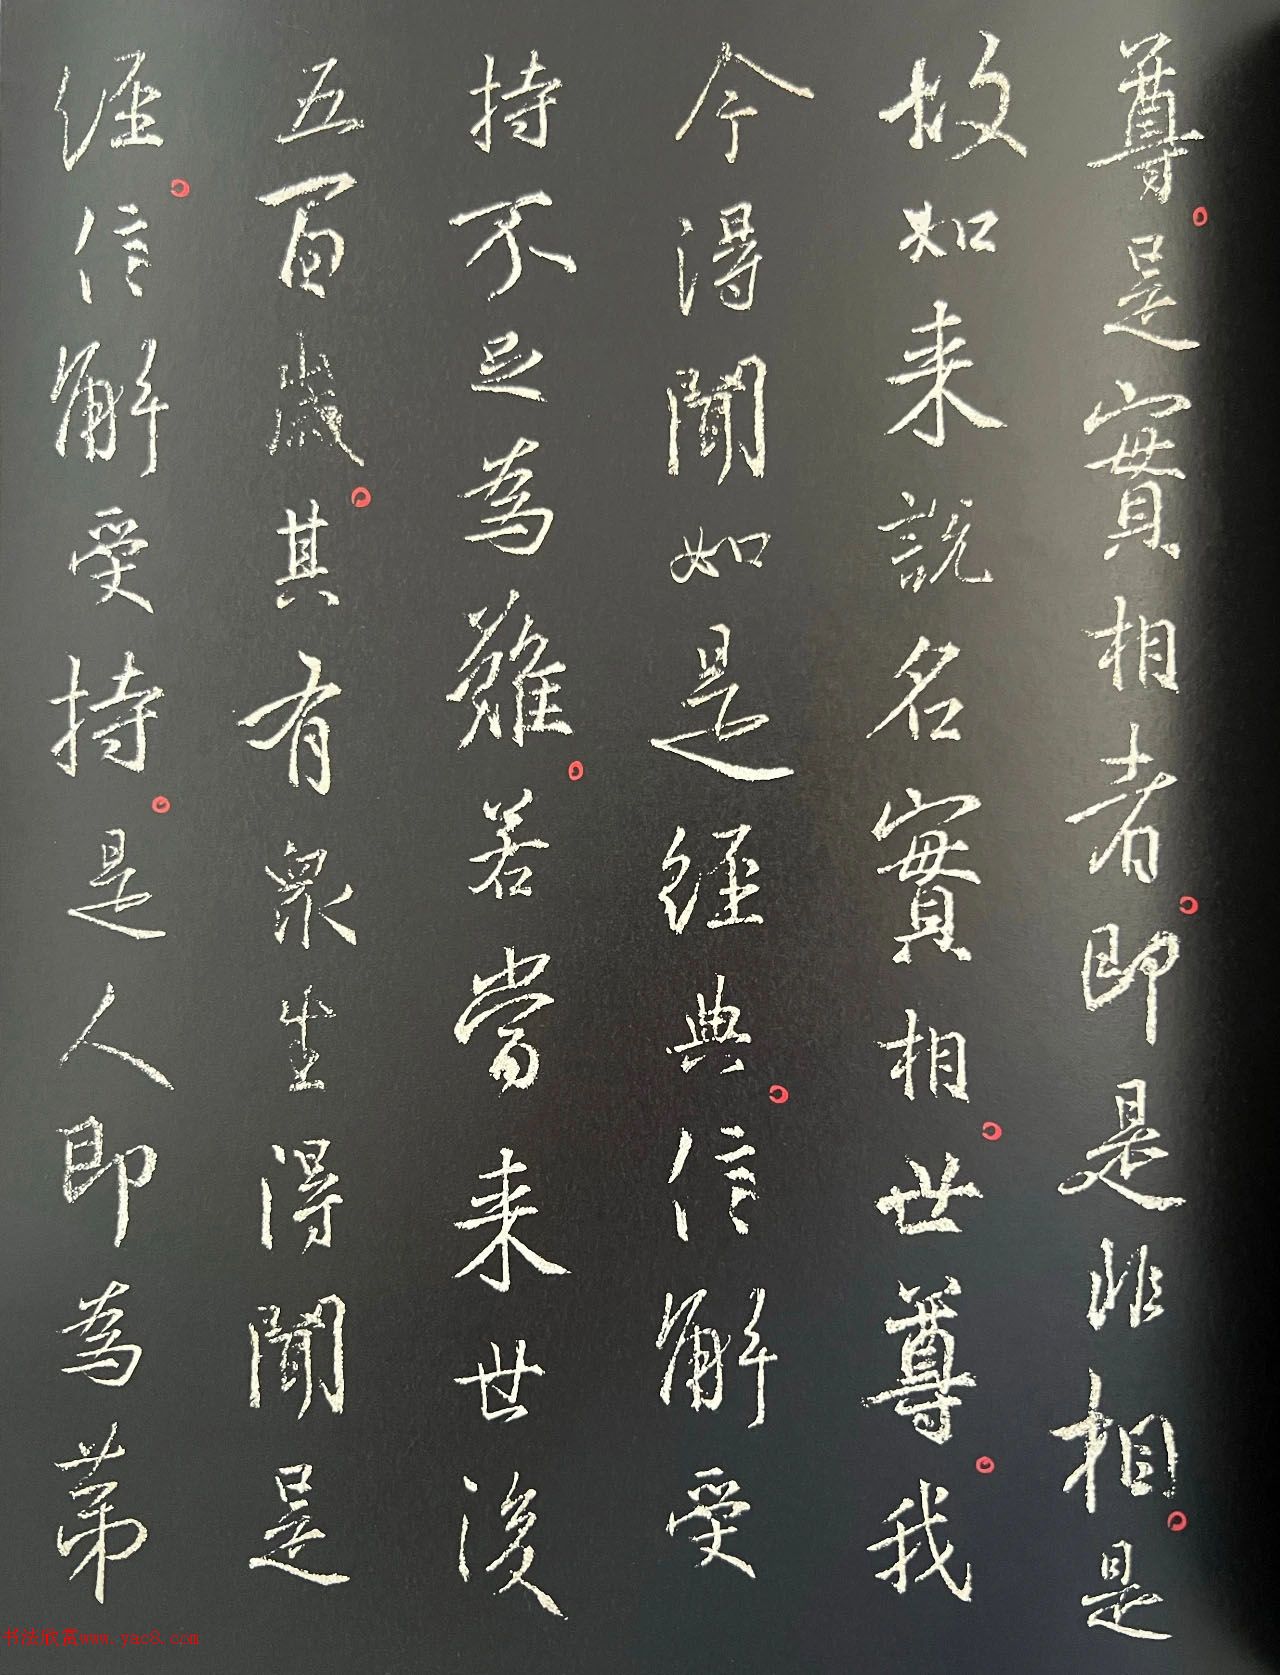 尊。是實相者。即是非相。是
故如来說名實相。世尊。我
今得聞如是經典。信解受
持不足為難。若當来世後
五百歲。其有衆生得聞是
經。信解受持。是人即為苐
书法欣赏www.yac8.com